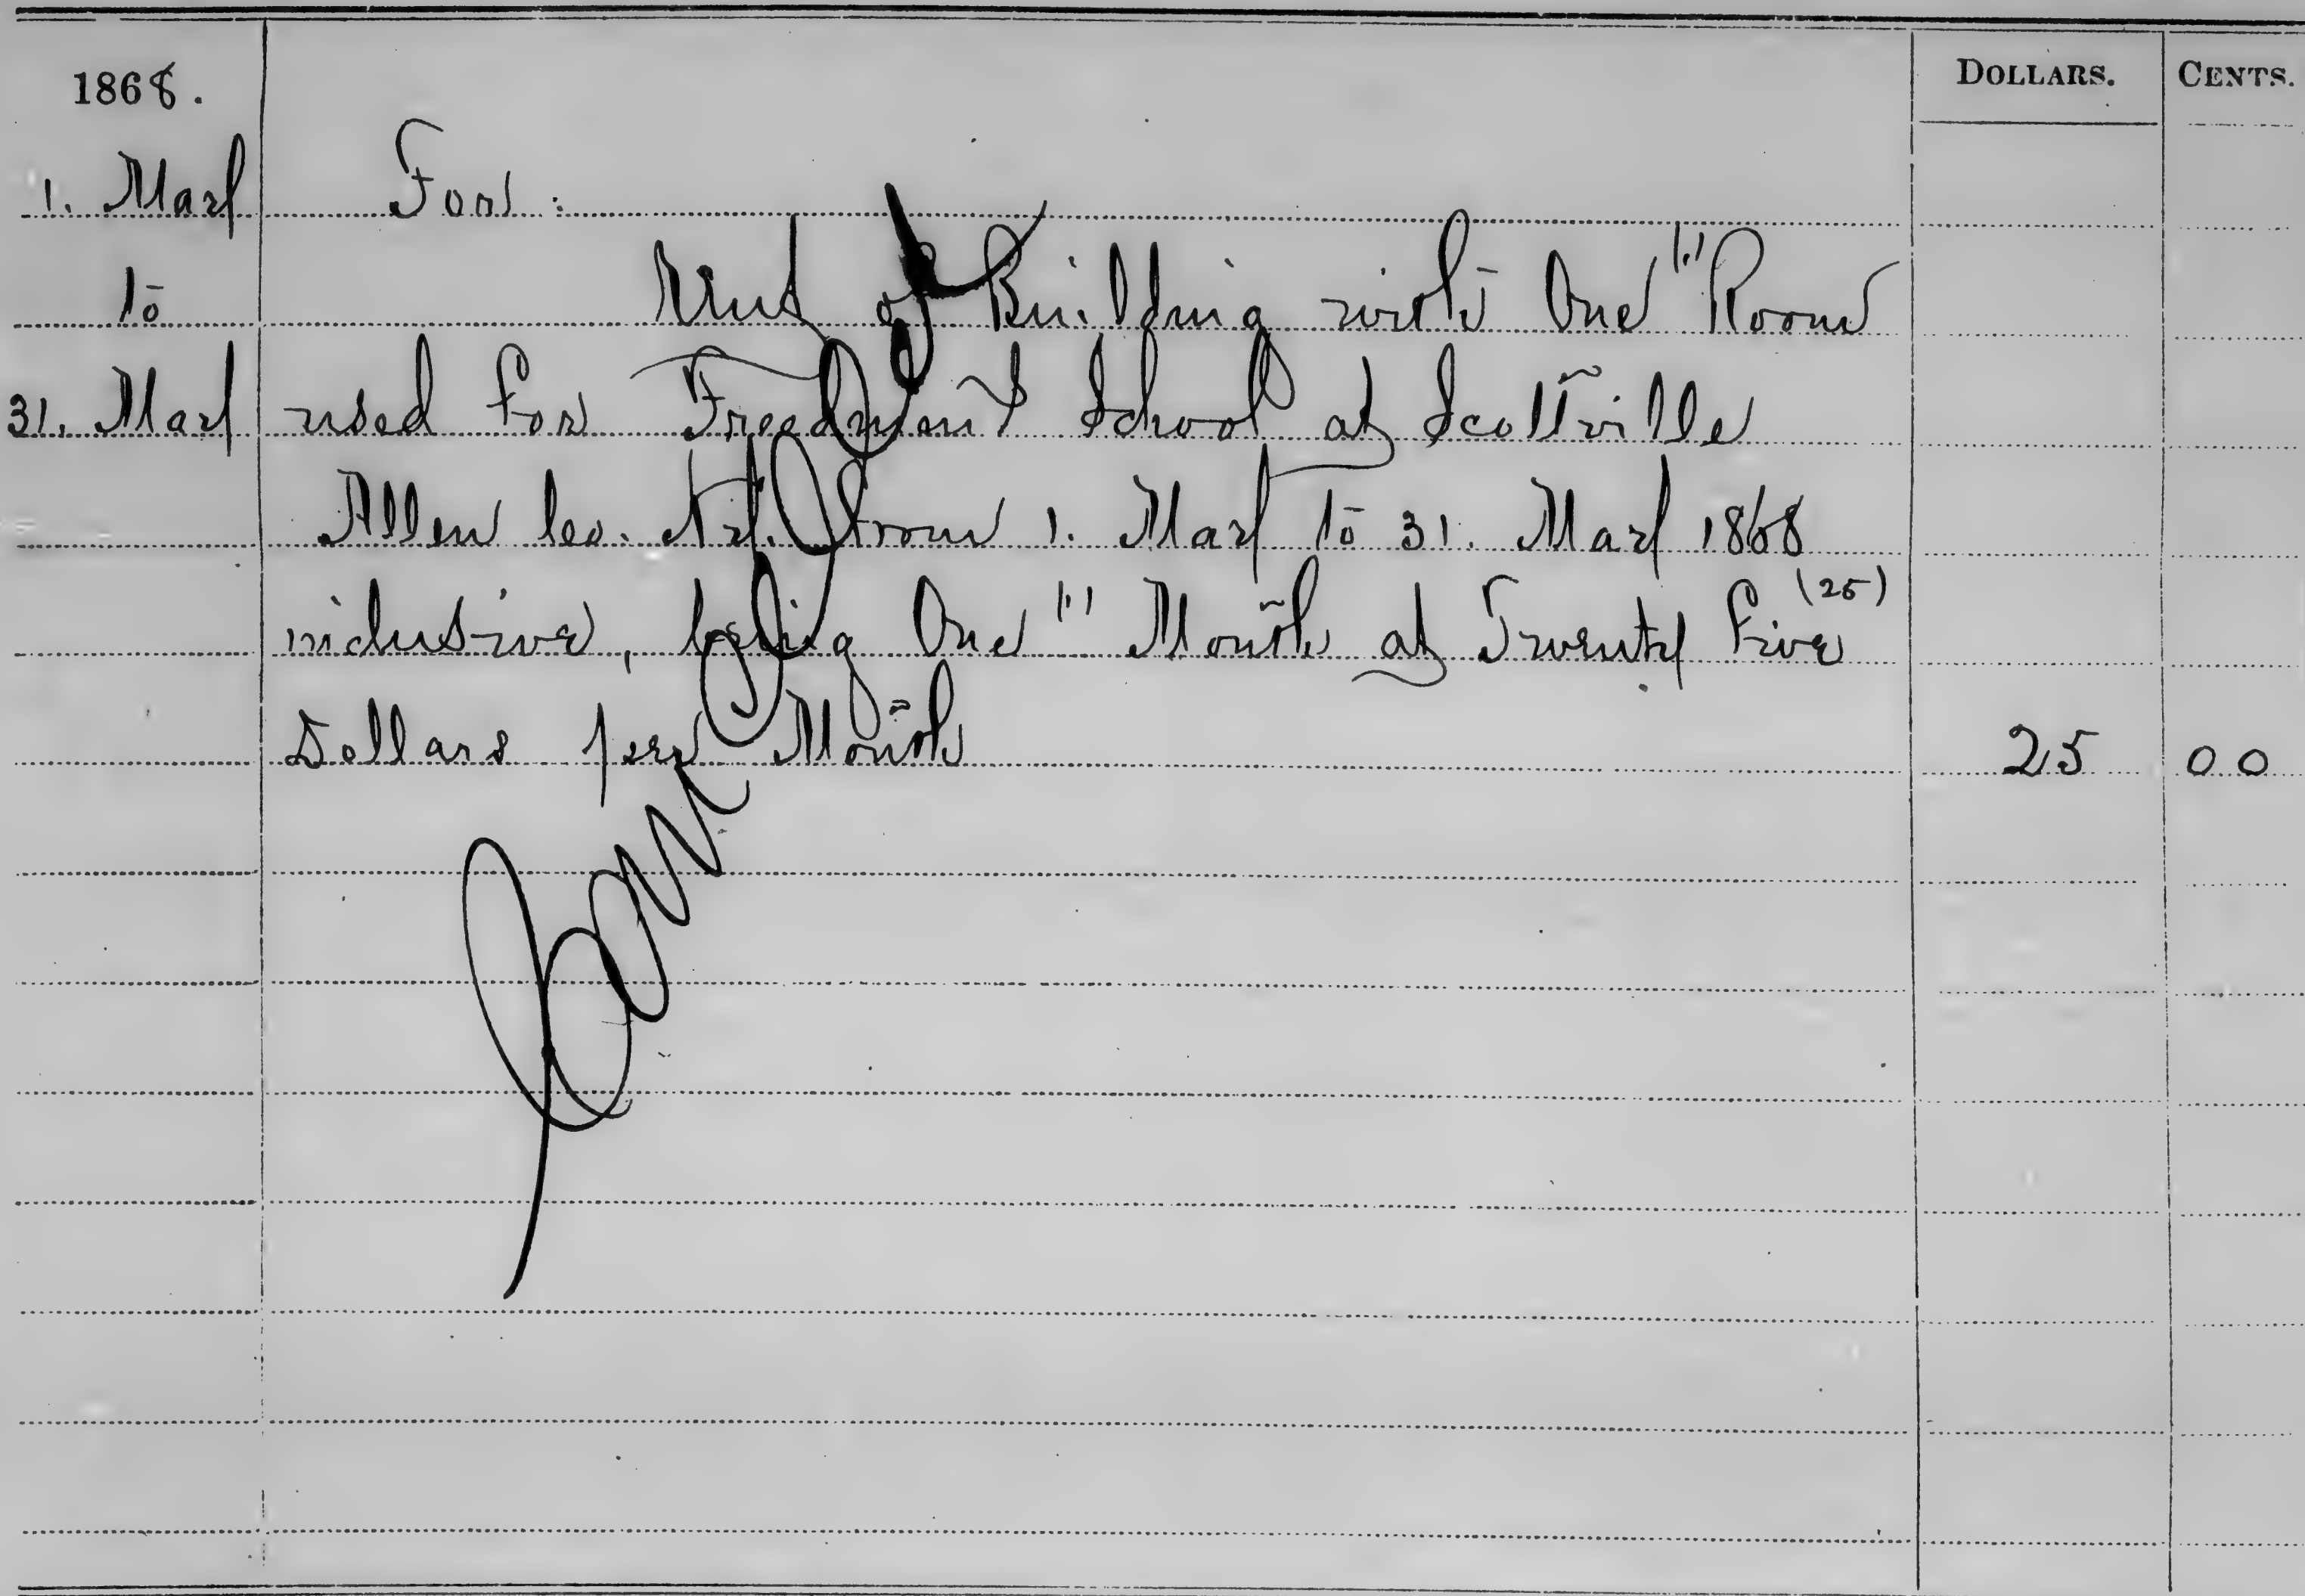 1868. DOLLARS. CENTS.
1. May For:
to Rent of Building with One (1) Room
31. May used for Freedmens School at Scottville
Allen Co. Ky. from 1. May to 31. May 1868
inclusive, being One (1) Month at Twenty Five (25)
Dollars per Month 25 00
Cancelled